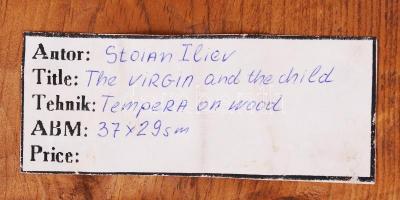 Autor: Stoian Iliev
Title: The VIRGIN and the child
Tehnik: TempeRA on wood
ABM: 37x29sm
Price: